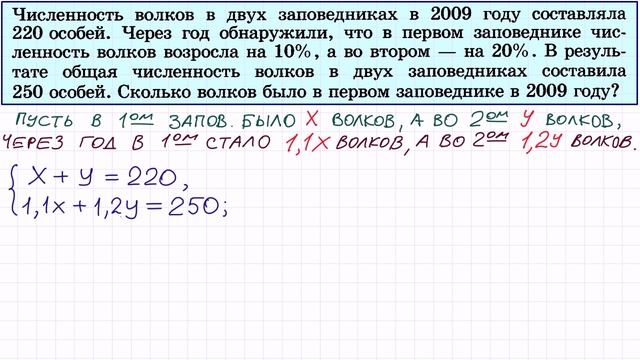 Численность волков в двух заповедниках в 2009 году составляла
220 особей. Через год обнаружили, что в первом заповеднике чис-
ленность волков возросла на 10%, а во втором — на 20%. В резуль-
тате общая численность волков в двух заповедниках составила
250 особей. Сколько волков было в первом заповеднике в 2009 году?
ПУСТЬ В 1ОМ ЗАПОВ. БЫЛО X ВОЛКОВ, А ВО 2ОМ У ВОЛКОВ,
ЧЕРЕЗ ГОД В 1ОМ СТАЛО 1,1X ВОЛКОВ, А ВО 2ОМ 1,2У ВОЛКОВ.
{ X + У = 220,
1,1x + 1,2У = 250;